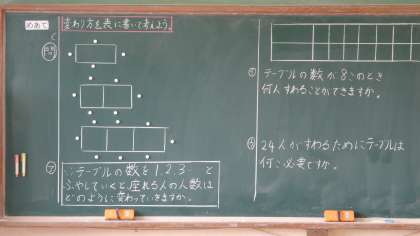 めあて
変わり方を表に書いて考えよう。
㋐
テーブルの数を1,2,3…と
ふやしていくと座れる人の人数は
どのように変わっていきますか。
テーブルの数が8このとき
何人すわることができますか。
24人がすわるためにテーブルは
何こ必要ですか。